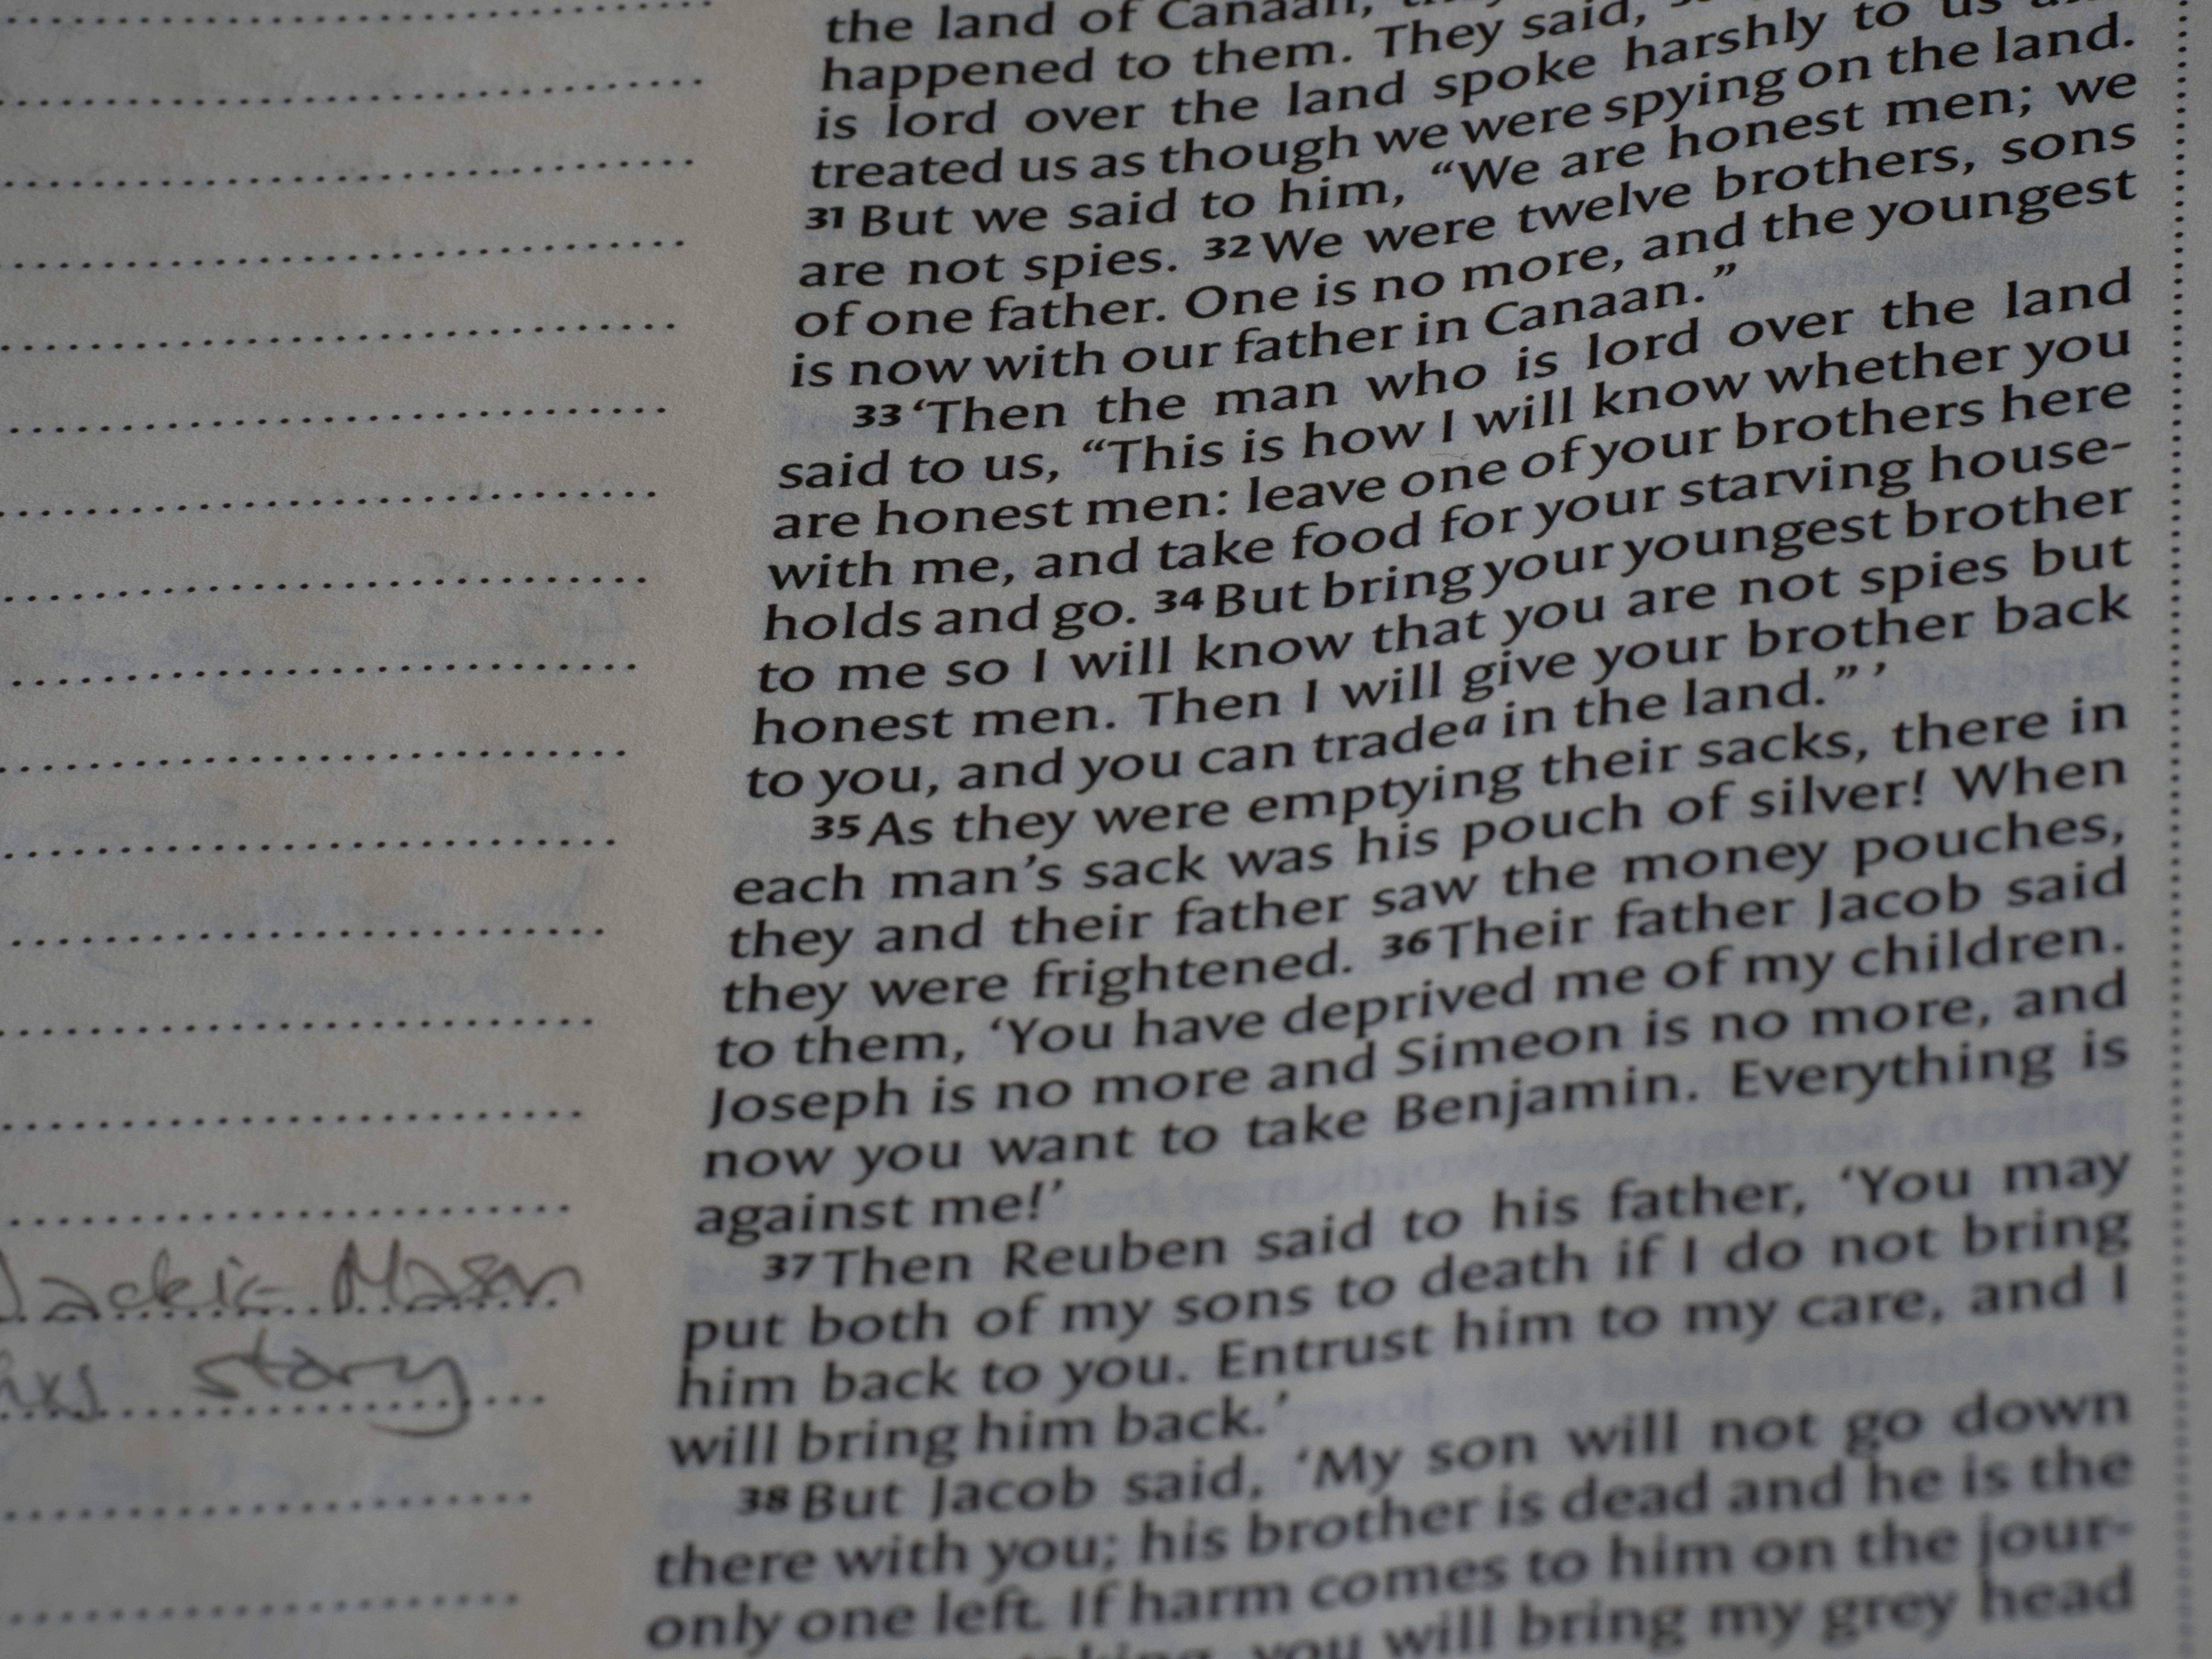 the land of Canaan,
happened to them. They said,
is lord over the land spoke harshly to us
treated us as though we were spying on the land.
31 But we said to him, “We are honest men; we
are not spies. 32 We were twelve brothers, sons
of one father. One is no more, and the youngest
is now with our father in Canaan.”
33 ‘Then the man who is lord over the land
said to us, “This is how I will know whether you
are honest men: leave one of your brothers here
with me, and take food for your starving house-
holds and go. 34 But bring your youngest brother
to me so I will know that you are not spies but
honest men. Then I will give your brother back
to you, and you can trade a in the land.” ’
35 As they were emptying their sacks, there in
each man’s sack was his pouch of silver! When
they and their father saw the money pouches,
they were frightened. 36 Their father Jacob said
to them, ‘You have deprived me of my children.
Joseph is no more and Simeon is no more, and
now you want to take Benjamin. Everything is
against me!’
37 Then Reuben said to his father, ‘You may
put both of my sons to death if I do not bring
him back to you. Entrust him to my care, and I
will bring him back.’
38 But Jacob said, ‘My son will not go down
there with you; his brother is dead and he is the
only one left. If harm comes to him on the jour-
you will bring my grey head
Jackie Mason
story